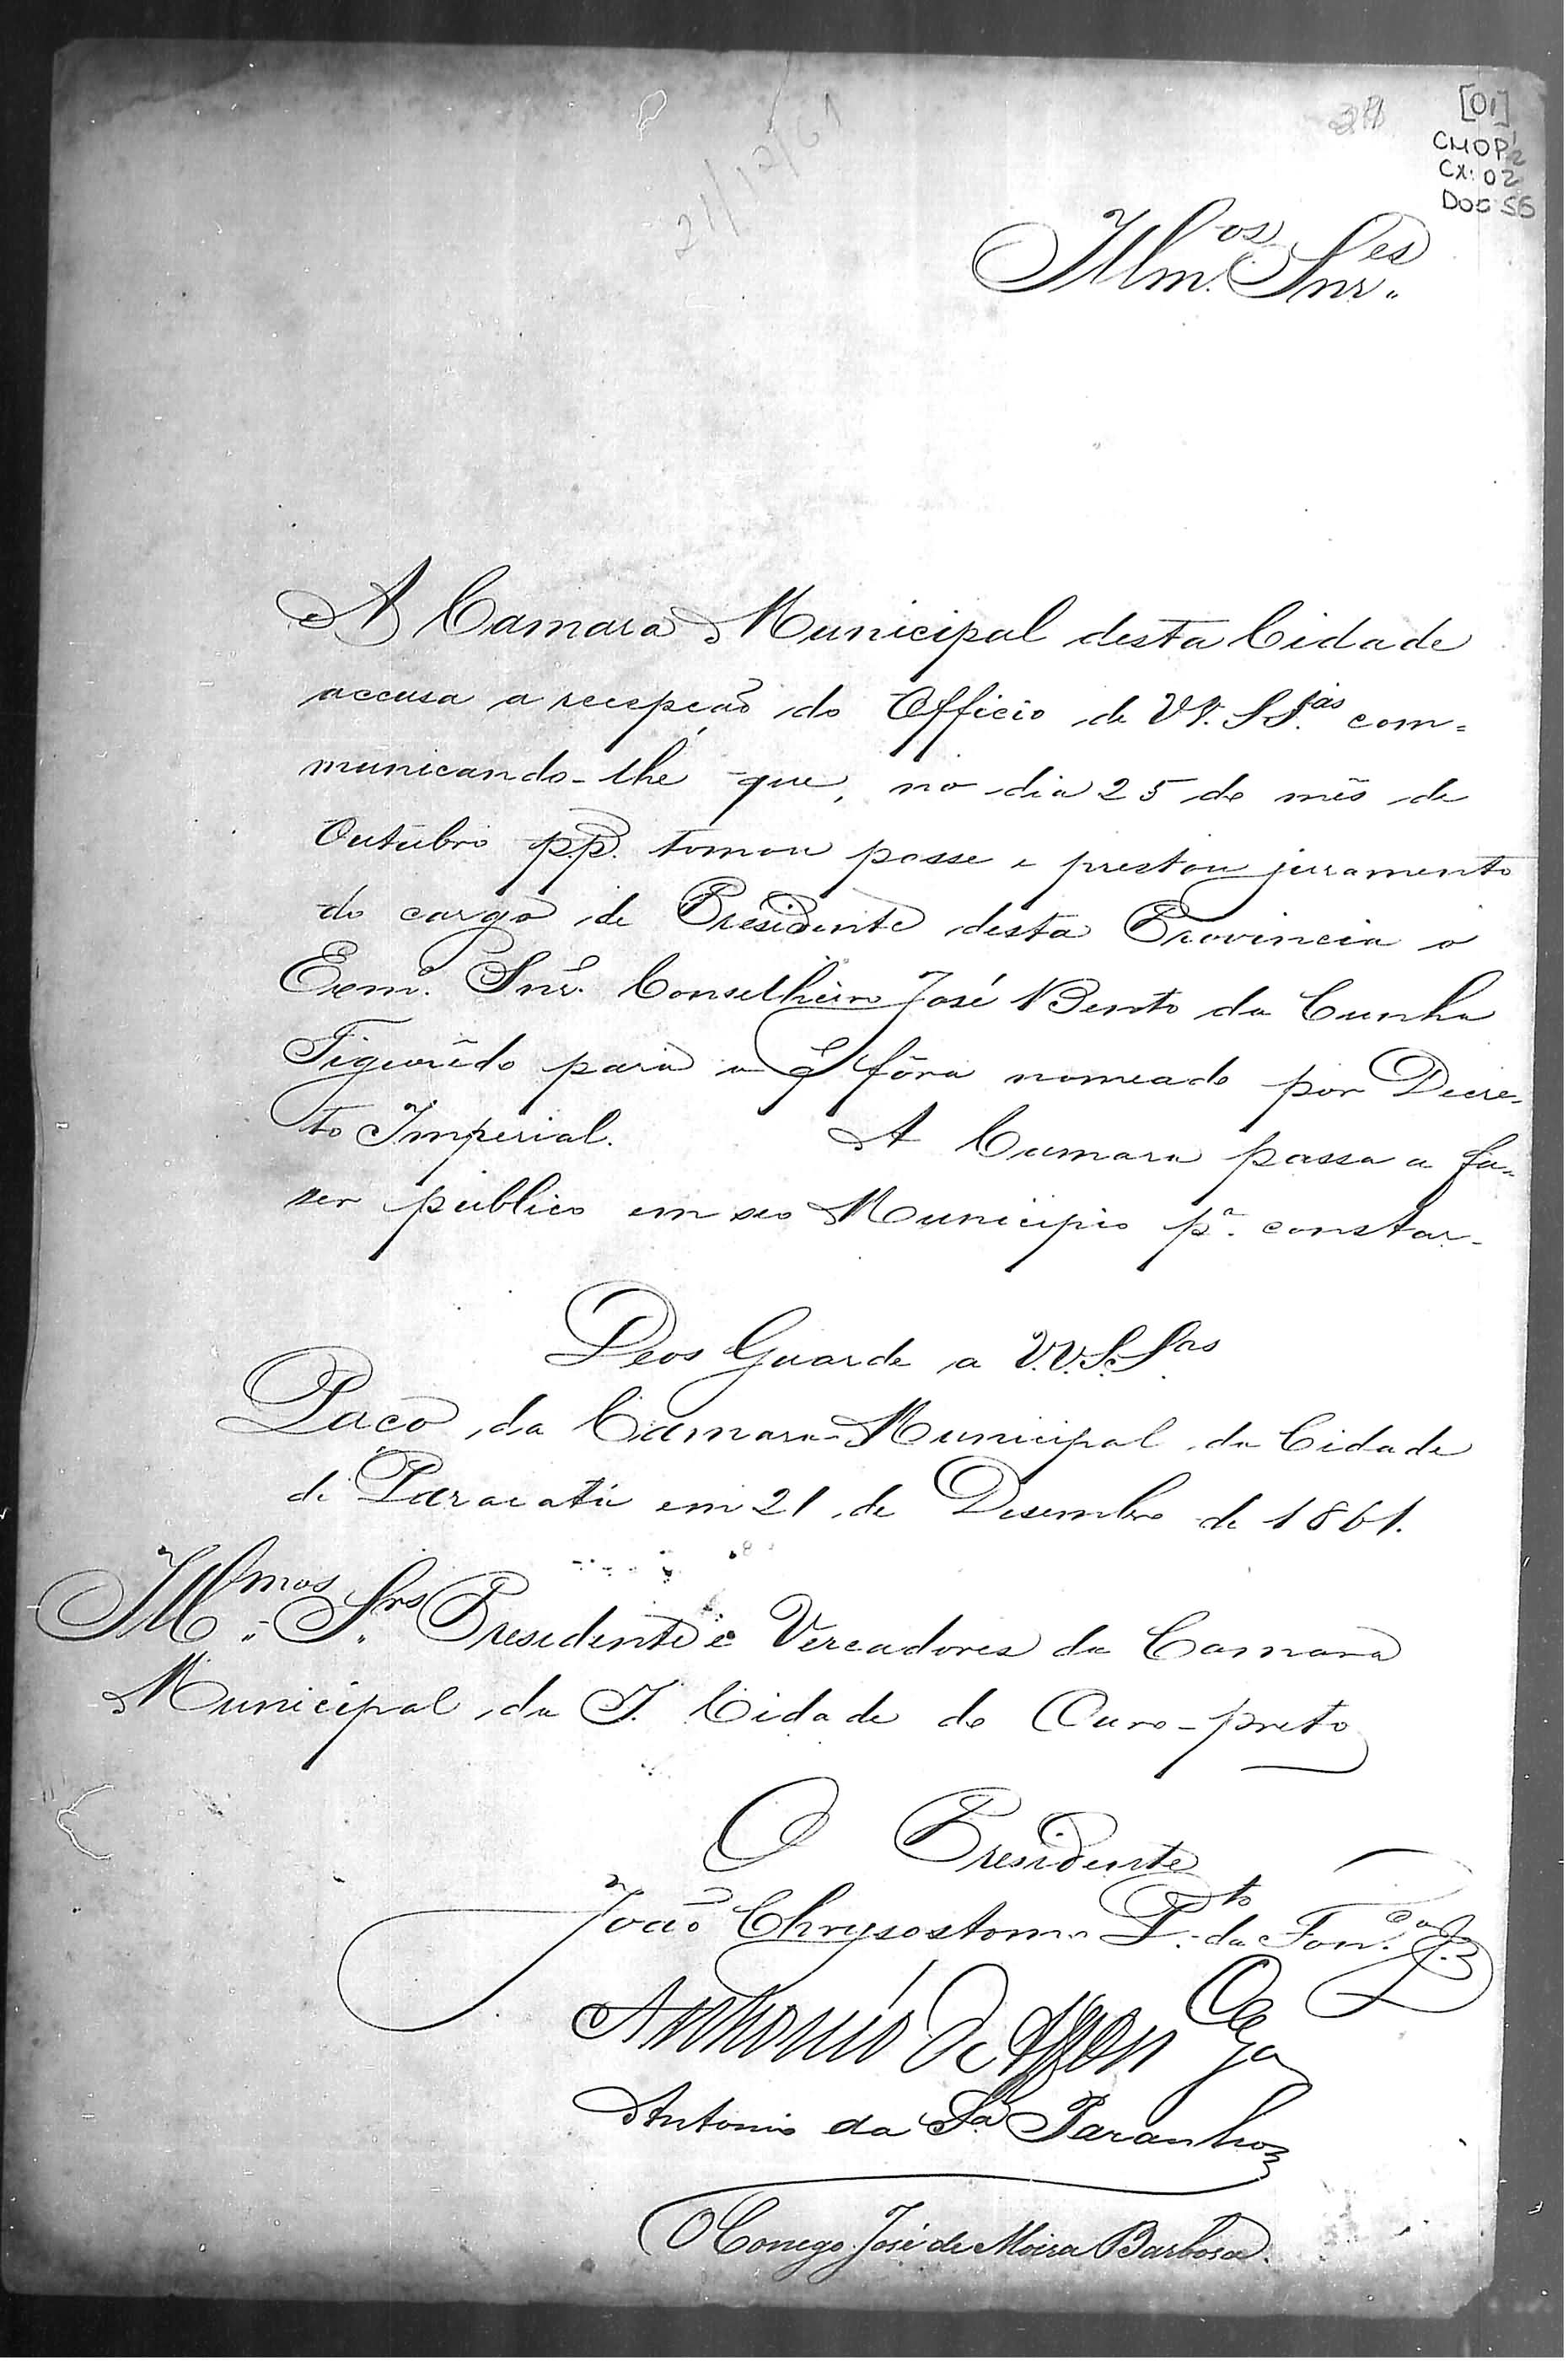 [01]
CMOP
CX: 02
DOC 56
21/12/61
Illm.os Snr.es
A Camara Municipal desta Cidade
accusa a recepção do Officio de VV. SS.as com=
municando-lhe que, no dia 25 do mês de
Outubro p.p. tomou posse e prestou juramento
do cargo de Presidente desta Provincia o
Exm.o Snr. Conselheiro José Bento da Cunha
Figueirêdo para o q̃ fôra nomeado por Decre-
to Imperial. A Camara passa a fa-
ser publico em seo Municipio p.a constar.
Deos Guarde a V.V.S.S.as
Paço da Camara Municipal da Cidade
de Paracatú em 21 de Desembro de 1861.
Ill.mos Srs. Presidente e Vereadores da Camara
Municipal da I. Cidade do Ouro-preto
O Presidente
João Chrysostomo P.to da Fon.ca
Antonio da S.a Paranhos
O Conego José de Moira Barbosa.